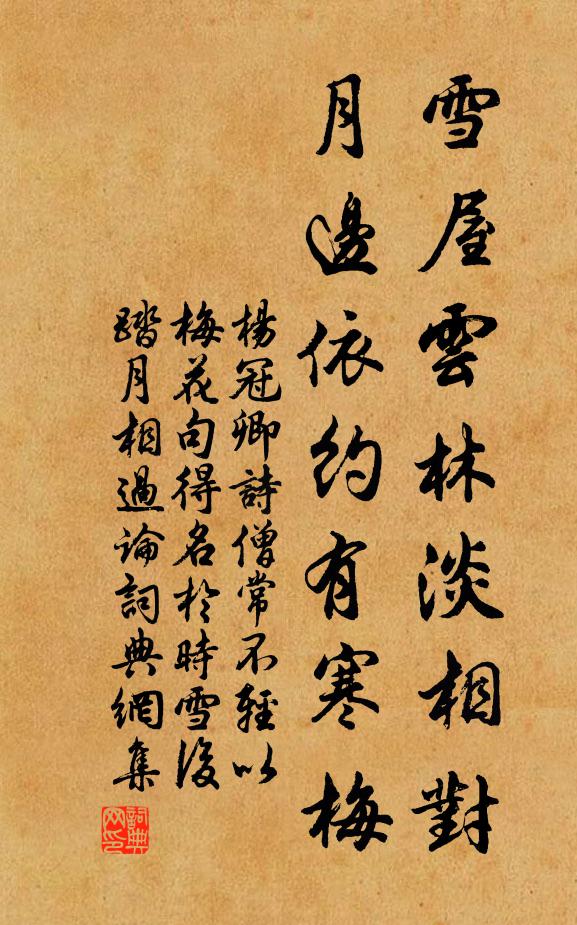 雪屋雲林淡相對
月邊依約有寒梅
楊冠卿詩僧常不輕以
梅花句得名於時雪後
踏月相過論詞典網集
詞典
网印